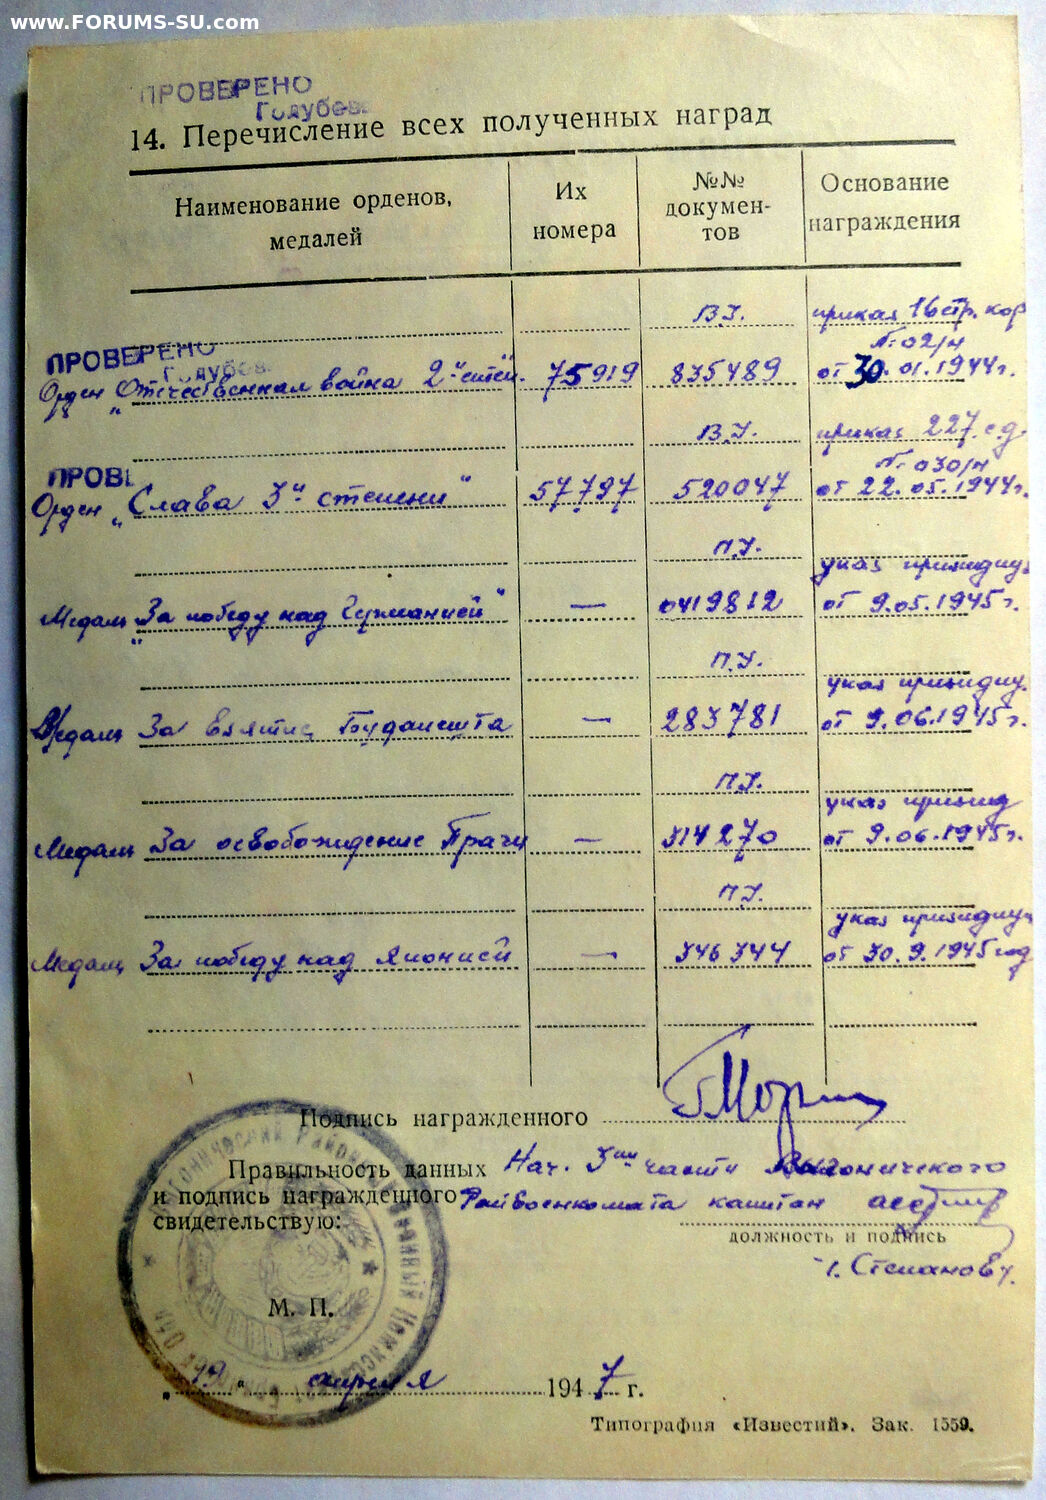 www.FORUMS-SU.com
ПРОВЕРЕНО
Голубев
14. Перечисление всех полученных наград
Наименование орденов, медалей
Их номера
№№ докумен-тов
Основание награждения
В.У. приказ 16 стр. кор
№ 02/н
ПРОВЕРЕНО
Голубев
Орден „Отечественная война 2й степ." 75919 835489 от 30.01.1944г.
В.У. приказ 227 с.д.
№ 030/н
ПРОВЕ
Орден „Слава 3й степени" 57797 520047 от 22.05.1944г.
П.У. указ призидиу
Медаль „За победу над Германией" — 0419812 от 9.05.1945г.
П.У. указ призидиу.
Медаль За взятие Будапешта — 283781 от 9.06.1945г.
П.У. указ призид
Медаль За освобождение Праги — 314270 от 9.06.1945г.
П.У. указ призидиу
Медаль За победу над Японией — 346344 от 30.9.1945 год
Подпись награжденного
Правильность данных Нач. 3ей части Выгоничского
и подпись награжденного Райвоенкомата капитан
свидетельствую:
должность и подпись
М. П.
„19" апреля 1947 г.
Типография «Известий». Зак. 1559.